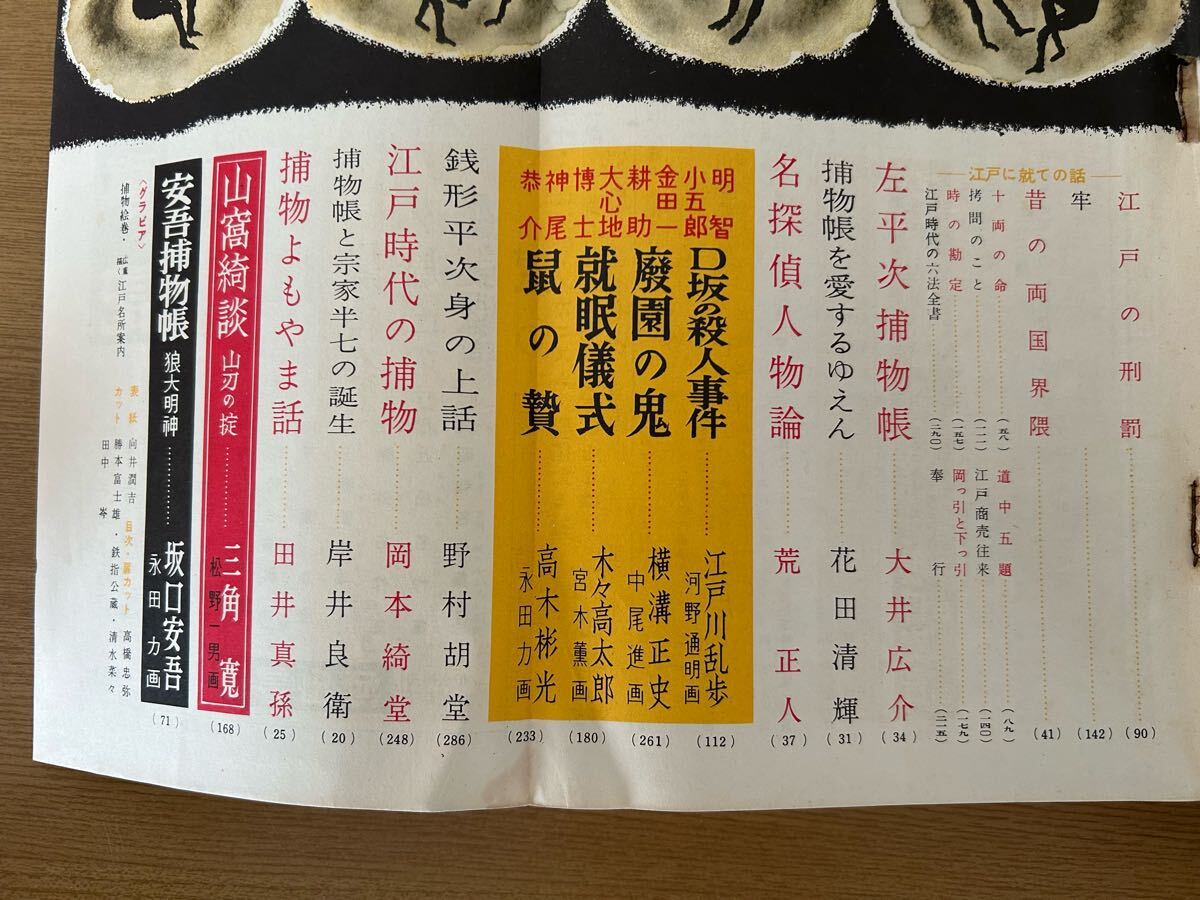 江戸の刑罰 (90)
牢 (142)
昔の両国界隈 (41)
江戸に就ての話
十両の命 (五八)
拷問のこと (一一一)
時の勘定 (一五七)
江戸時代の六法全書 (二九〇)
道中五題 (八九)
江戸商売往来 (一四〇)
岡っ引と下っ引 (一七九)
奉行 (二一五)
左平次捕物帳 大井広介 (34)
捕物帳を愛するゆえん 花田清輝 (31)
名探偵人物論 荒正人 (37)
明智小五郎
D坂の殺人事件 江戸川乱歩 河野通明画 (112)
金田一耕助
廢園の鬼 横溝正史 中尾進画 (261)
大心地博士
就眠儀式 木々高太郎 宮木薫画 (180)
神尾恭介
鼠の贄 高木彬光 永田力画 (233)
銭形平次身の上話 野村胡堂 (286)
江戸時代の捕物 岡本綺堂 (248)
捕物帳と宗家半七の誕生 岸井良衛 (20)
捕物よもやま話 田井真孫 (25)
山窩綺談 山刃の掟 三角寛 松野一男画 (168)
安吾捕物帳 狼大明神 坂口安吾 永田力画 (71)
〈グラビア〉
捕物絵巻・広重描く江戸名所案内
表紙 向井潤吉 目次・扉カット 高橋忠弥
カット 勝本富士雄・鉄指公蔵・清水菜々
田中岑